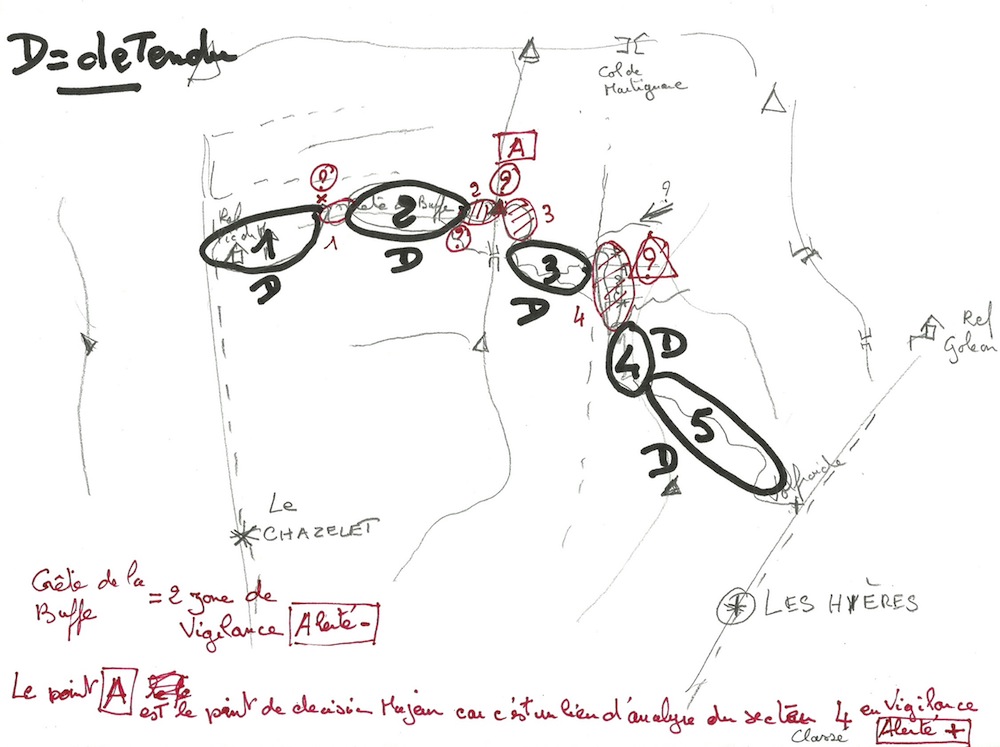 D = deTendu
Col de
Martignare
A
?
?
2
Crête de Buffe
2
3
Ref
1
1
?
D
D
3
?
?
D
4
4
D
5
D
Ref
Goleon
Valfroide
Le
CHAZELET
LES HYÈRES
Crête de la
Buffe
= 2 zone de
Vigilance Alerté -
Le point A
est le point de decision Majeur car c'est un lien d'analyse du secteur 4 en Vigilance
Classe Alerté +